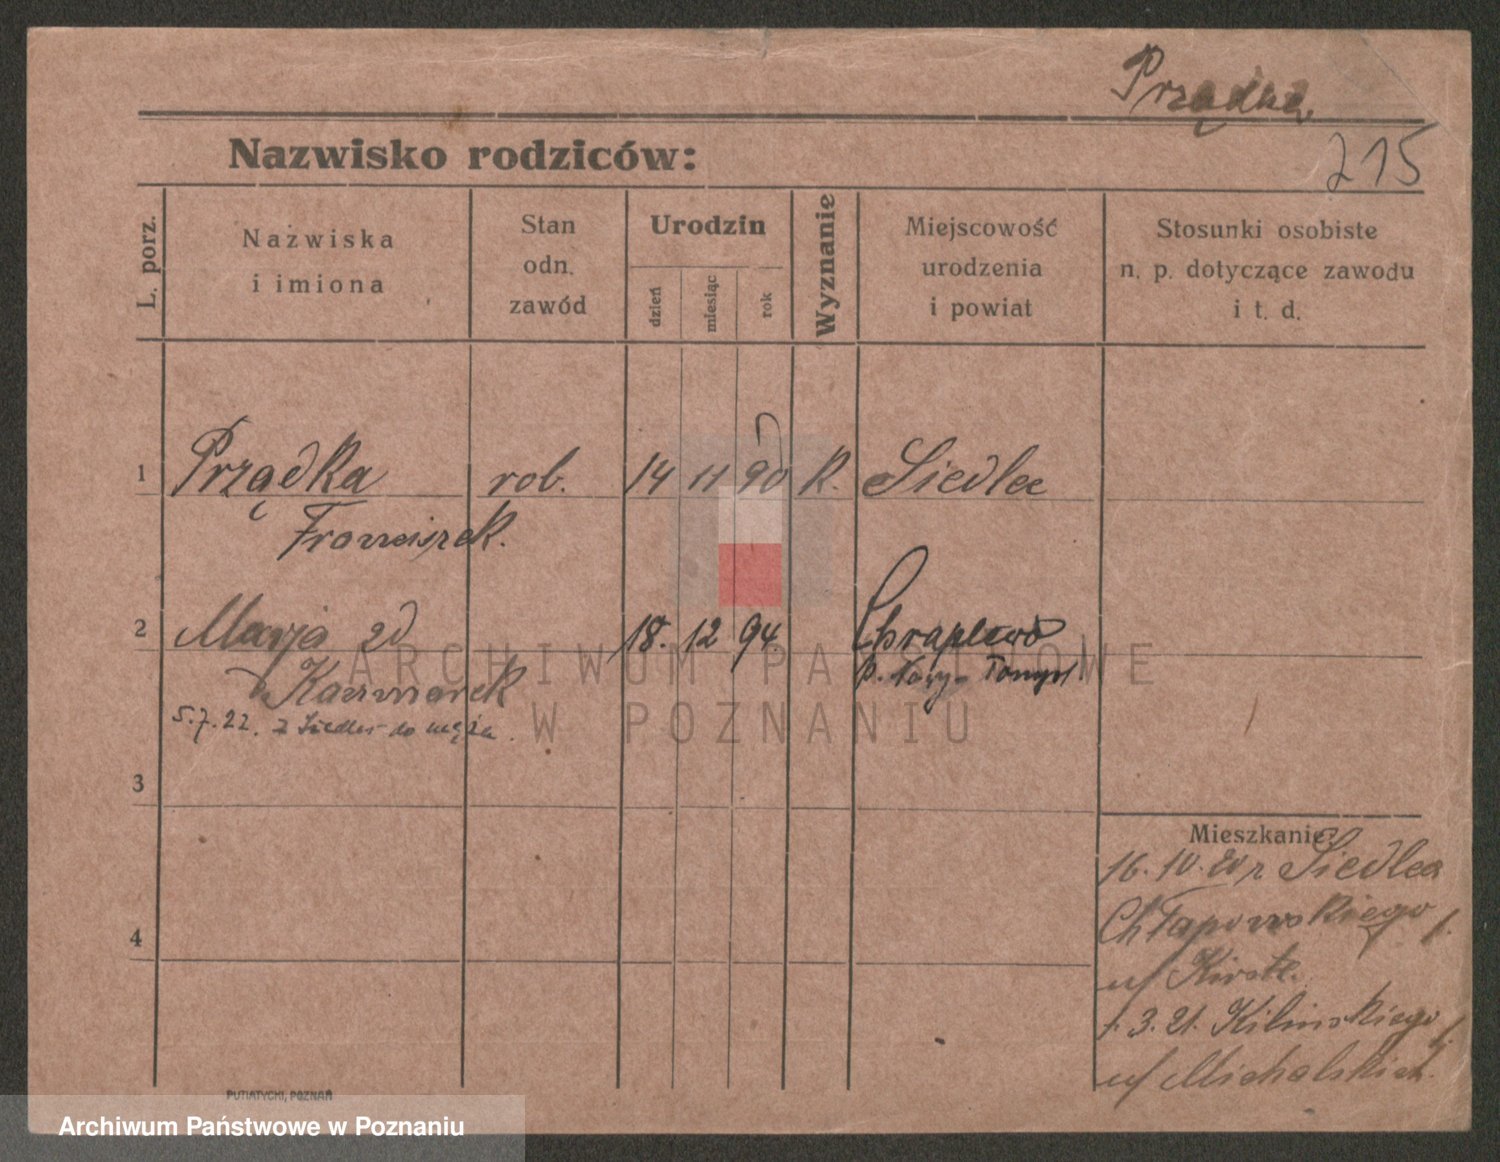 Prządka
215
Nazwisko rodziców:
L. porz.
Nazwiska
i imiona
Stan
odn.
zawód
Urodzin
dzień
miesiąc
rok
Wyznanie
Miejscowość
urodzenia
i powiat
Stosunki osobiste
n. p. dotyczące zawodu
i t. d.
1 Prządka rob. 14 11 90 k. Siedlec
Franciszek.
2 Marja zd 18. 12 94 Chraplewo
Kaczmarek p. Nowy-Tomyśl
5.7.22. z Siedlec do męża.
3
4
Mieszkanie:
16.10.20 z Siedlca
Chłapowskiego 1.
u/
1.3.21. Kilińskiego
u/ Michalskich.
PUTIATYCKI, POZNAŃ
ARCHIWUM PAŃSTWOWE
W POZNANIU
Archiwum Państwowe w Poznaniu